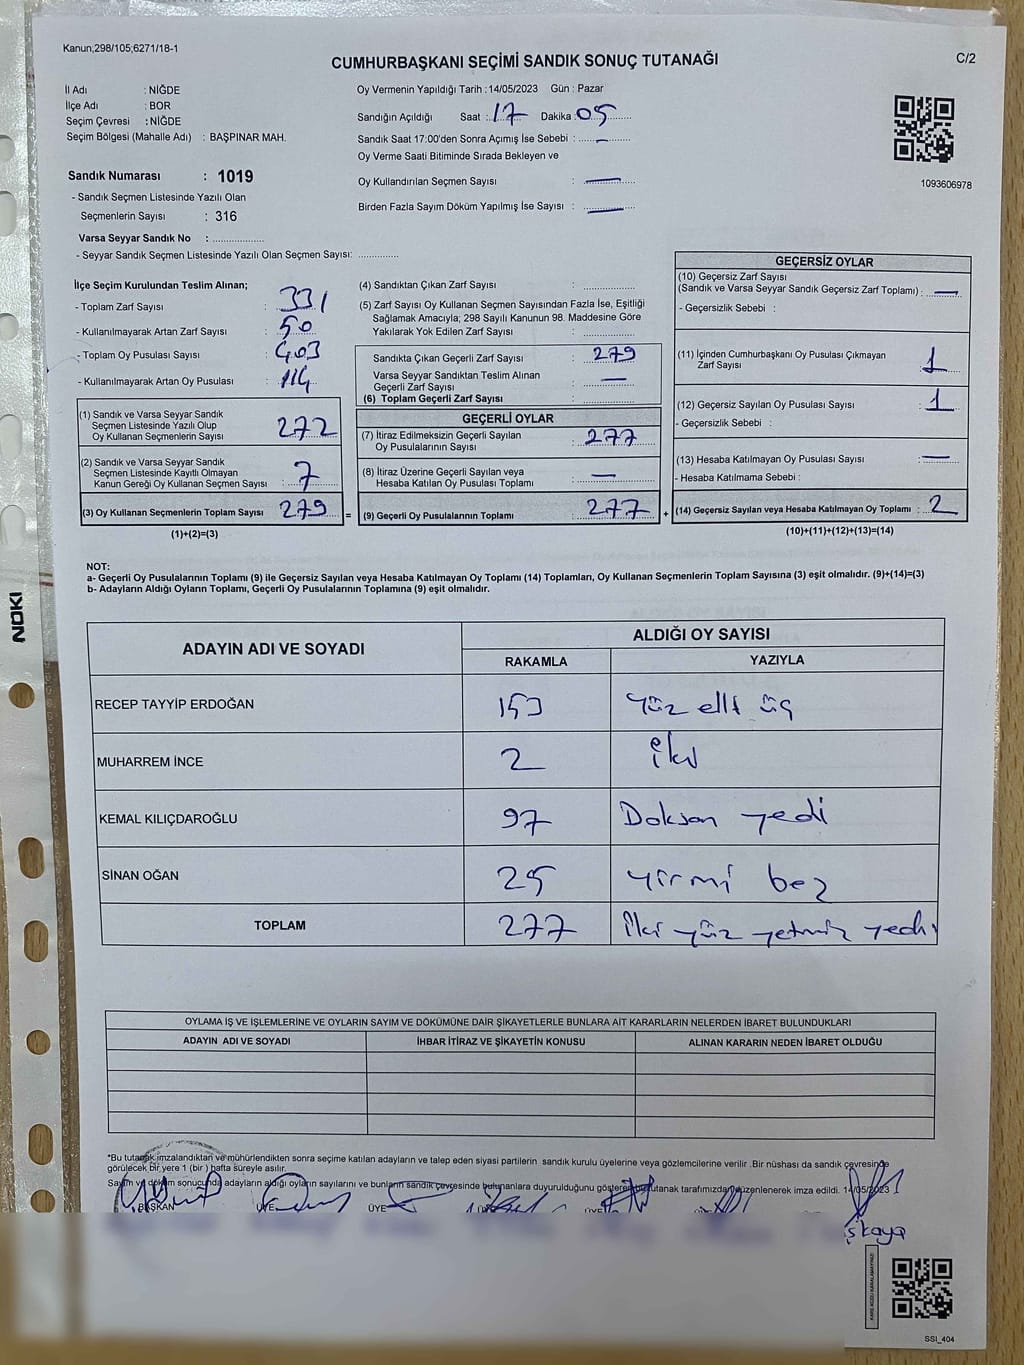 Kanun;298/105;6271/18-1
CUMHURBAŞKANI SEÇİMİ SANDIK SONUÇ TUTANAĞI
C/2
İl Adı : NİĞDE
İlçe Adı : BOR
Seçim Çevresi : NİĞDE
Seçim Bölgesi (Mahalle Adı) : BAŞPINAR MAH.
Oy Vermenin Yapıldığı Tarih : 14/05/2023 Gün : Pazar
Sandığın Açıldığı Saat : 17 Dakika : 05
Sandık Saat 17:00'den Sonra Açımış İse Sebebi : —
Oy Verme Saati Bitiminde Sırada Bekleyen ve
Oy Kullandırılan Seçmen Sayısı : —
Birden Fazla Sayım Döküm Yapılmış İse Sayısı : —
1093606978
Sandık Numarası : 1019
- Sandık Seçmen Listesinde Yazılı Olan
Seçmenlerin Sayısı : 316
Varsa Seyyar Sandık No : ..................
- Seyyar Sandık Seçmen Listesinde Yazılı Olan Seçmen Sayısı: ..............
İlçe Seçim Kurulundan Teslim Alınan;
- Toplam Zarf Sayısı : 331
- Kullanılmayarak Artan Zarf Sayısı : 50
- Toplam Oy Pusulası Sayısı : 403
- Kullanılmayarak Artan Oy Pusulası : 114
(1) Sandık ve Varsa Seyyar Sandık
Seçmen Listesinde Yazılı Olup
Oy Kullanan Seçmenlerin Sayısı : 272
(2) Sandık ve Varsa Seyyar Sandık
Seçmen Listesinde Kayıtlı Olmayan
Kanun Gereği Oy Kullanan Seçmen Sayısı : 7
(3) Oy Kullanan Seçmenlerin Toplam Sayısı : 279
(1)+(2)=(3)
(4) Sandıktan Çıkan Zarf Sayısı : ..............
(5) Zarf Sayısı Oy Kullanan Seçmen Sayısından Fazla İse, Eşitliği
Sağlamak Amacıyla; 298 Sayılı Kanunun 98. Maddesine Göre
Yakılarak Yok Edilen Zarf Sayısı : ..............
Sandıkta Çıkan Geçerli Zarf Sayısı : 279
Varsa Seyyar Sandıktan Teslim Alınan
Geçerli Zarf Sayısı : —
(6) Toplam Geçerli Zarf Sayısı : ..............
GEÇERLİ OYLAR
(7) İtiraz Edilmeksizin Geçerli Sayılan
Oy Pusulalarının Sayısı : 277
(8) İtiraz Üzerine Geçerli Sayılan veya
Hesaba Katılan Oy Pusulası Toplamı : —
= (9) Geçerli Oy Pusulalarının Toplamı : 277 +
GEÇERSİZ OYLAR
(10) Geçersiz Zarf Sayısı
(Sandık ve Varsa Seyyar Sandık Geçersiz Zarf Toplamı) : —
- Geçersizlik Sebebi :
(11) İçinden Cumhurbaşkanı Oy Pusulası Çıkmayan
Zarf Sayısı : 1
(12) Geçersiz Sayılan Oy Pusulası Sayısı : 1
- Geçersizlik Sebebi :
(13) Hesaba Katılmayan Oy Pusulası Sayısı : —
- Hesaba Katılmama Sebebi :
(14) Geçersiz Sayılan veya Hesaba Katılmayan Oy Toplamı : 2
(10)+(11)+(12)+(13)=(14)
NOT:
a- Geçerli Oy Pusulalarının Toplamı (9) ile Geçersiz Sayılan veya Hesaba Katılmayan Oy Toplamı (14) Toplamları, Oy Kullanan Seçmenlerin Toplam Sayısına (3) eşit olmalıdır. (9)+(14)=(3)
b- Adayların Aldığı Oyların Toplamı, Geçerli Oy Pusulalarının Toplamına (9) eşit olmalıdır.
NOKI
ADAYIN ADI VE SOYADI
ALDIĞI OY SAYISI
RAKAMLA YAZIYLA
RECEP TAYYİP ERDOĞAN 153 yüz elli üç
MUHARREM İNCE 2 iki
KEMAL KILIÇDAROĞLU 97 Doksan yedi
SİNAN OĞAN 25 yirmi beş
TOPLAM 277 iki yüz yetmiş yedi
OYLAMA İŞ VE İŞLEMLERİNE VE OYLARIN SAYIM VE DÖKÜMÜNE DAİR ŞİKAYETLERLE BUNLARA AİT KARARLARIN NELERDEN İBARET BULUNDUKLARI
ADAYIN ADI VE SOYADI İHBAR İTİRAZ VE ŞİKAYETİN KONUSU ALINAN KARARIN NEDEN İBARET OLDUĞU
*Bu tutanak imzalandıktan ve mühürlendikten sonra seçime katılan adayların ve talep eden siyasi partilerin sandık kurulu üyelerine veya gözlemcilerine verilir .Bir nüshası da sandık çevresinde
görülecek bir yere 1 (bir ) hafta süreyle asılır.
Sayım ve döküm sonucunda adayların aldığı oyların sayılarını ve bunların sandık çevresinde bulunanlara duyurulduğunu gösteren bu tutanak tarafımızdan düzenlenerek imza edildi. 14/05/2023
BAŞKAN ÜYE ÜYE ÜYE ÜYE
SSI_404